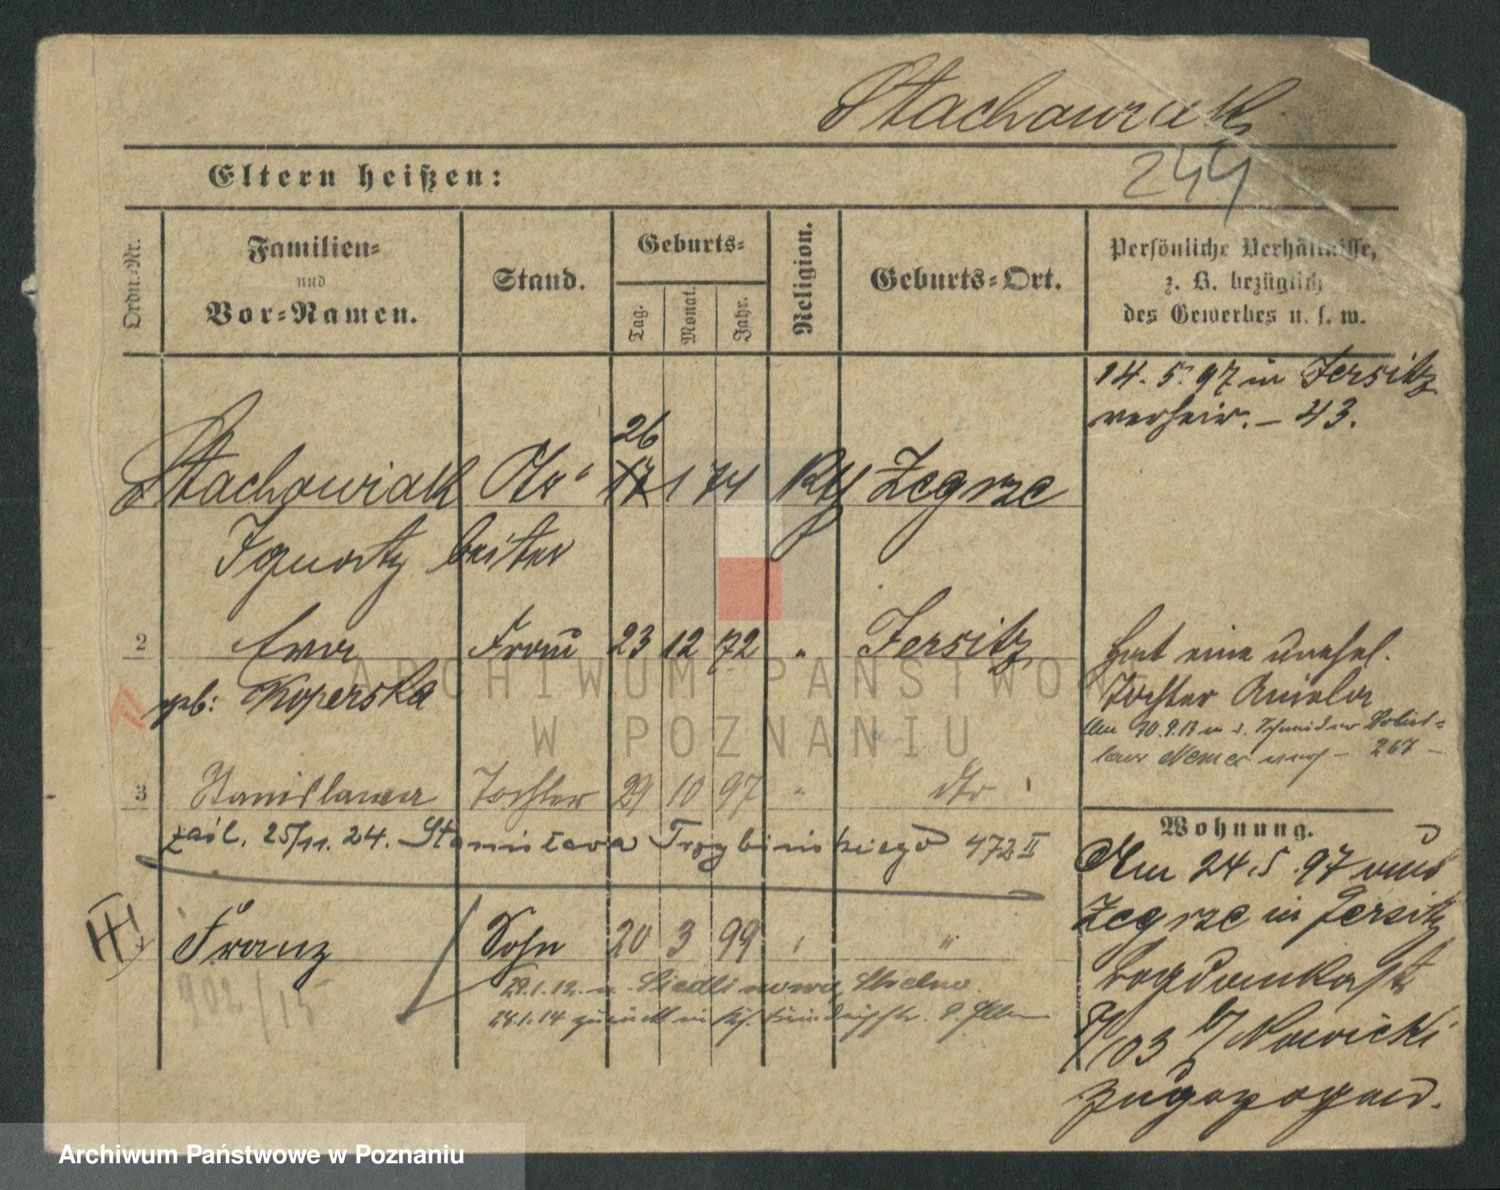 Stachowiak
244
Eltern heißen:
Ordn.-Nr.
Familien-
und
Vor-Namen.
Stand.
Geburts-
Tag.
Monat.
Jahr.
Religion.
Geburts-Ort.
Persönliche Verhältnisse,
z. B. bezüglich
des Gewerbes u. s. w.
14. 5. 97 in Jersitz
verheir. – 43.
26
Stachowiak Ar- 17 1 74 Kth Zegrze
Ignatz beiter
2 Ewa Frau 23 12 72 " Jersitz
geb: Koperska
Hat eine unehel.
Tochter Aniela
3 Stanislawa Tochter 29 10 97 " dto
zail. 25/11. 24. Stanisława Trzybińskiego 472 II
Franz Sohn 20 3 99 " "
902/15
29.1.12. n. Siedlimowo Strelno
24.1.14 zurück
Wohnung.
Am 24.5.97 aus
Zegrze in Jersitz
Bogdankastr
7/103 b/ Nowicki
zugezogen.
ARCHIWUM PAŃSTWOWE
W POZNANIU
Archiwum Państwowe w Poznaniu